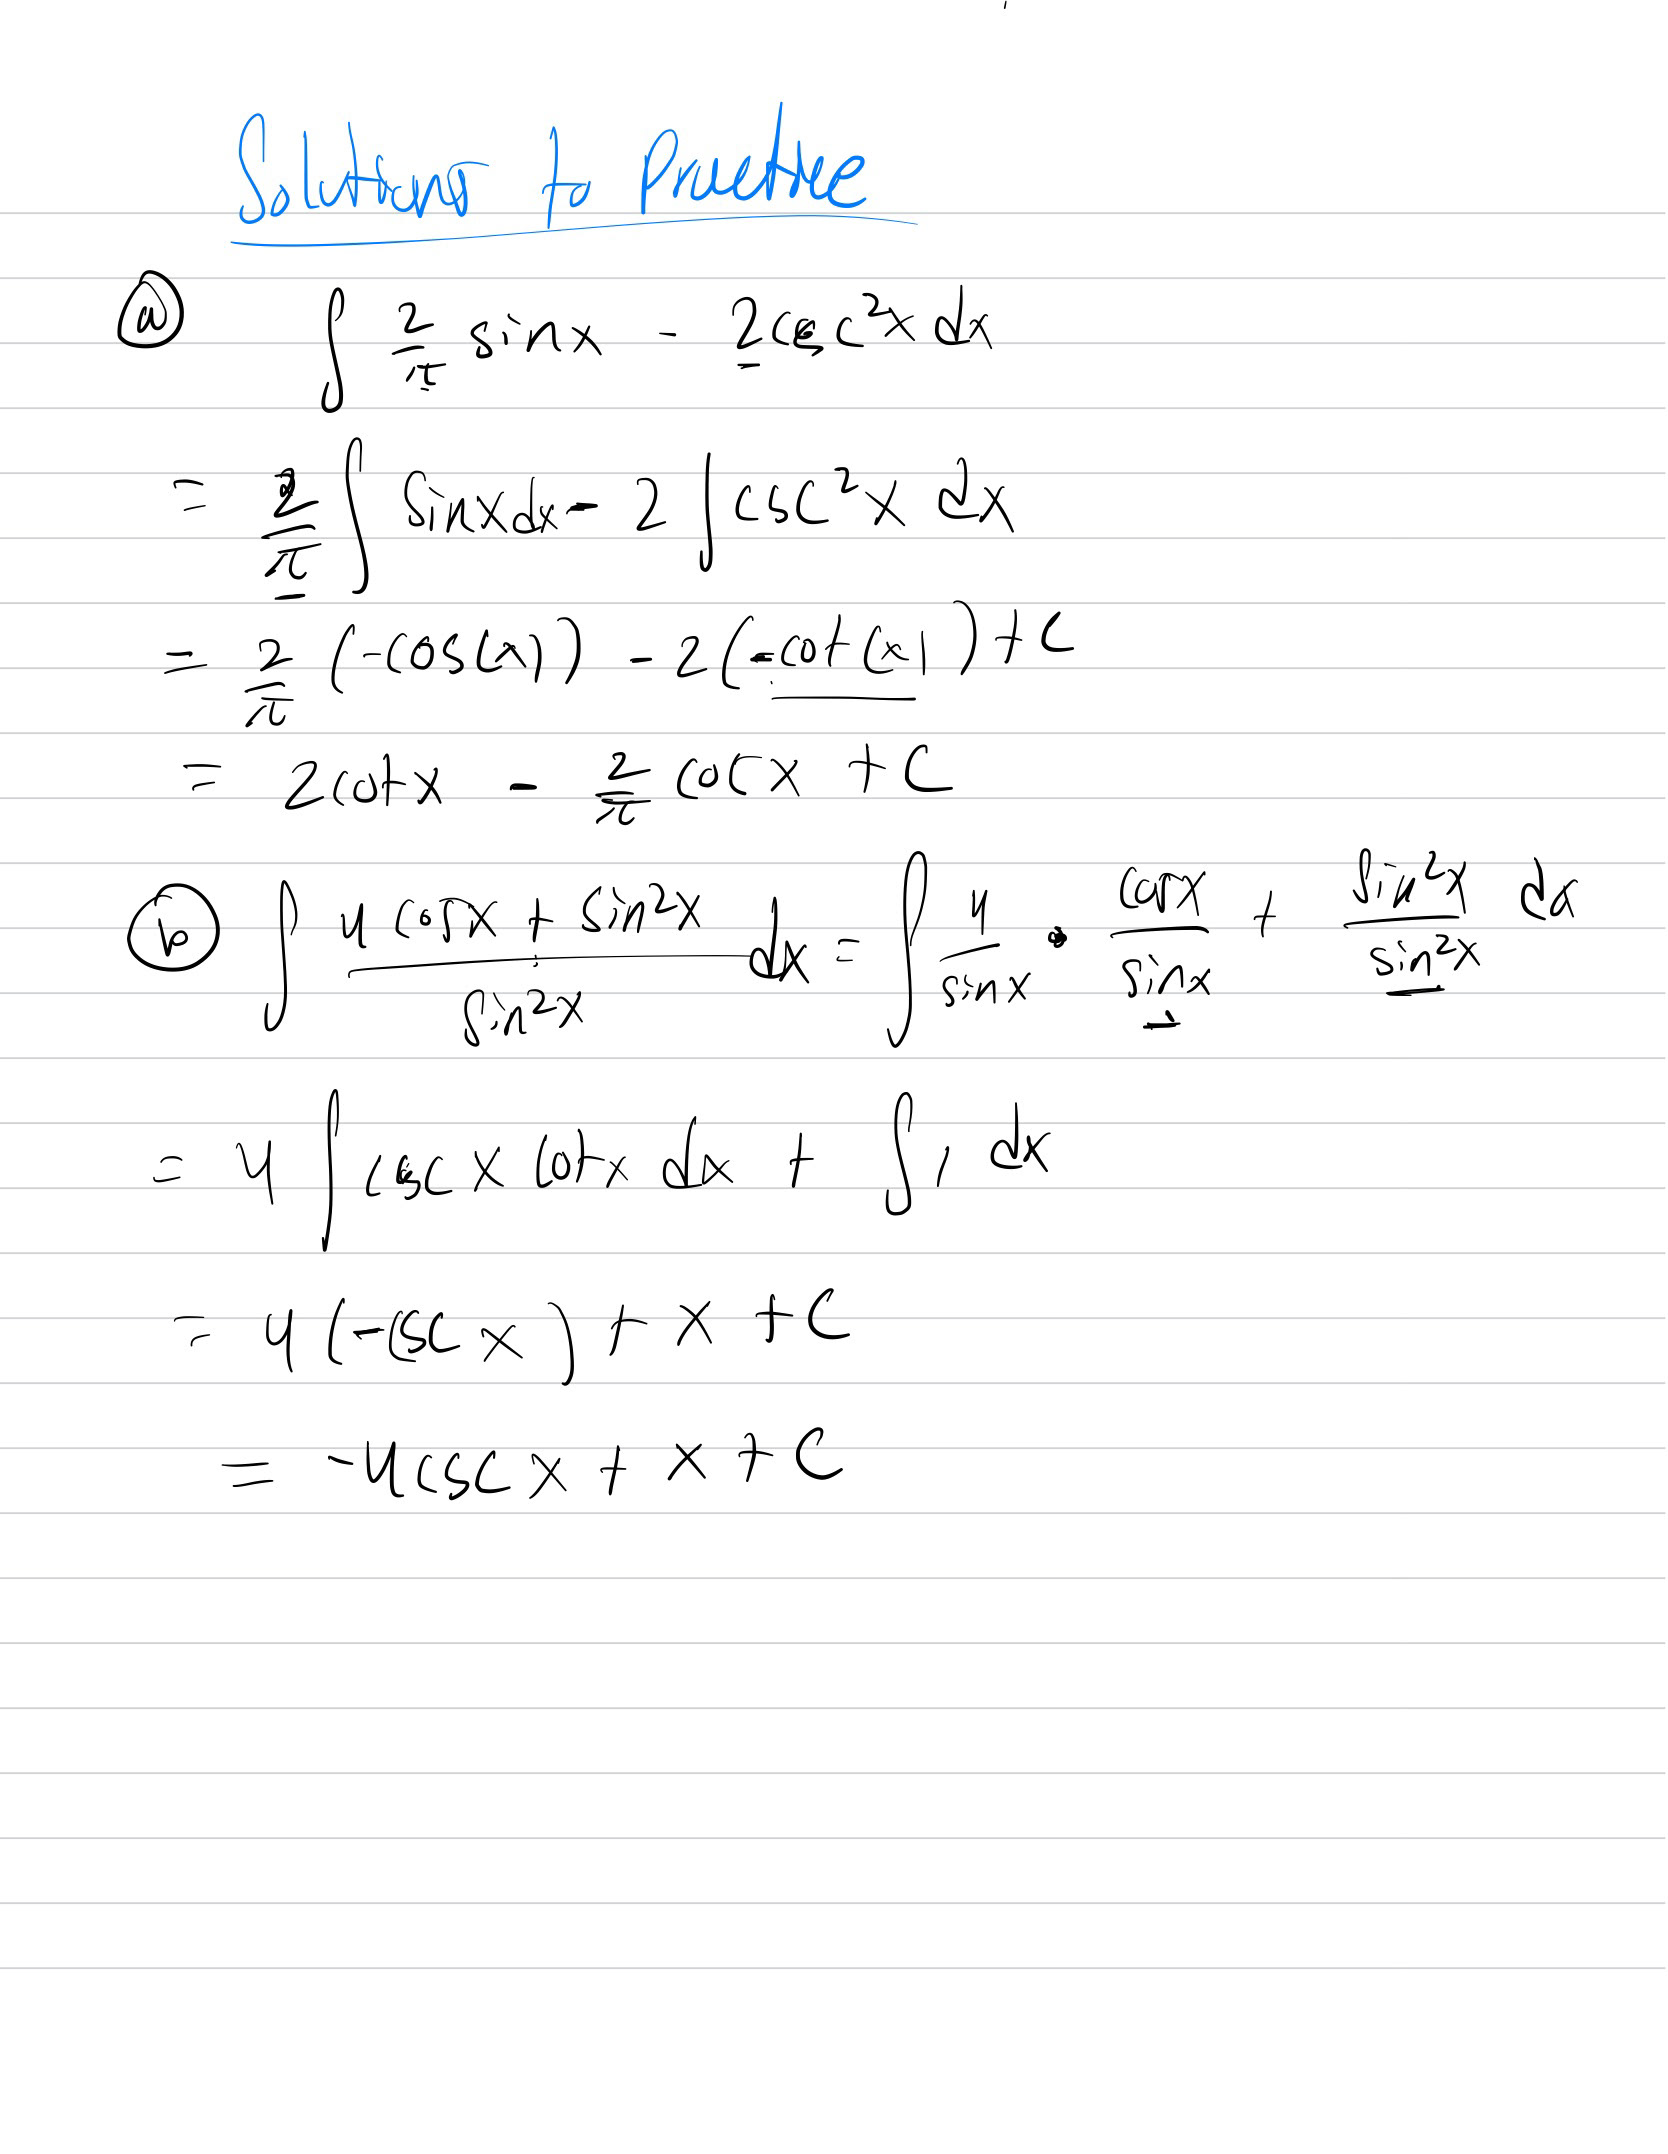 Solutions to Practice
(a) ∫ 2/π sinx - 2csc²x dx
= 2/π ∫ sinx dx - 2 ∫ csc²x dx
= 2/π (-cos(x)) - 2(-cot(x)) + C
= 2cotx - 2/π cosx + C
(b) ∫ (4cosx + sin²x)/sin²x dx = ∫ 4/sinx • cosx/sinx + sin²x/sin²x dx
= 4 ∫ cscx cotx dx + ∫ 1 dx
= 4(-cscx) + x + C
= -4cscx + x + C